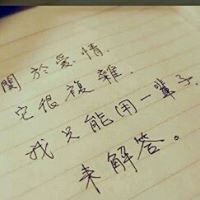 關於愛情,
它很複雜,
我只能用一輩子
來解答。